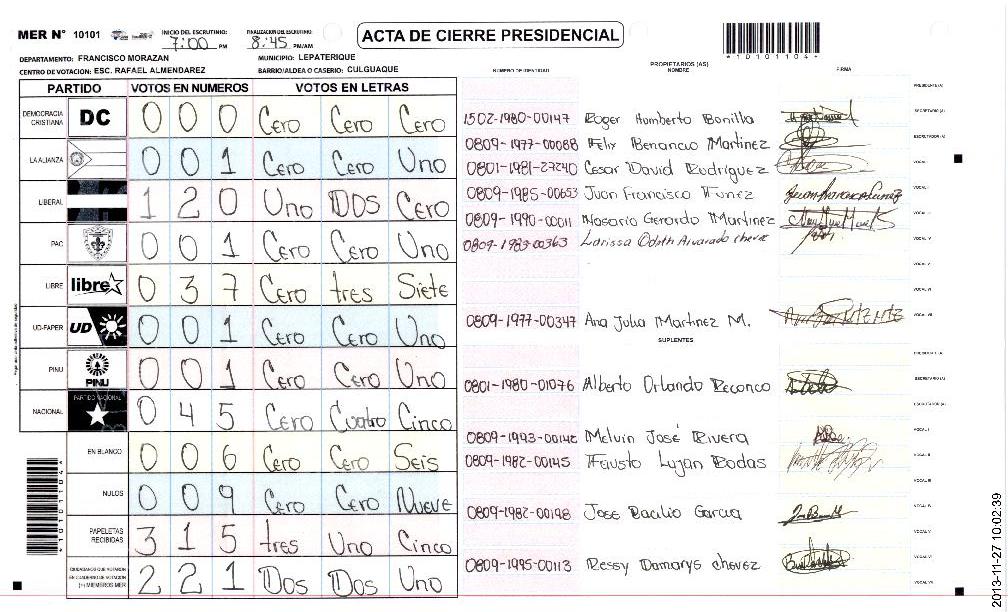 MER N° 10101 INICIO DEL ESCRUTINIO: 7:00 PM FINALIZACIÓN DEL ESCRUTINIO: 8:45 PM/AM
ACTA DE CIERRE PRESIDENCIAL
*10101104*
DEPARTAMENTO: FRANCISCO MORAZAN MUNICIPIO: LEPATERIQUE
CENTRO DE VOTACION: ESC. RAFAEL ALMENDAREZ BARRIO/ALDEA O CASERIO: CULGUAQUE
PARTIDO VOTOS EN NUMEROS VOTOS EN LETRAS
DEMOCRACIA CRISTIANA DC 0 0 0 Cero Cero Cero
LA ALIANZA 0 0 1 Cero Cero Uno
LIBERAL 1 2 0 Uno Dos Cero
PAC 0 0 1 Cero Cero Uno
LIBRE libre 0 3 7 Cero tres Siete
UD-FAPER UD 0 0 1 Cero Cero Uno
PINU PINU 0 0 1 Cero Cero Uno
NACIONAL PARTIDO NACIONAL 0 4 5 Cero Cuatro Cinco
EN BLANCO 0 0 6 Cero Cero Seis
NULOS 0 0 9 Cero Cero Nueve
PAPELETAS RECIBIDAS 3 1 5 tres Uno Cinco
CIUDADANOS QUE VOTARON EN CUADERNO DE VOTACION (+) MIEMBROS MER 2 2 1 Dos Dos Uno
*10101104*
NUMERO DE IDENTIDAD PROPIETARIOS (AS) NOMBRE FIRMA
PRESIDENTE (A)
1502-1980-00147 Roger Humberto Bonilla SECRETARIO (A)
0809-1977-00088 Felix Benancio Martinez ESCRUTADOR (A)
0801-1981-27240 Cesar David Rodriguez VOCAL I
0809-1985-00653 Juan Francisco Funez VOCAL II
0809-1990-00011 Nosario Gerardo Martinez VOCAL III
0809-1983-00363 Larissa Odath Alvarado chevez VOCAL IV
VOCAL V
VOCAL VI
0809-1977-00347 Ana Julia Martinez M. VOCAL VII
SUPLENTES
PRESIDENTE (A)
0801-1980-01076 Alberto Orlando Reconco SECRETARIO (A)
ESCRUTADOR (A)
0809-1993-00142 Melvin José Rivera VOCAL I
0809-1982-00145 Fausto Lujan Rodas VOCAL II
VOCAL III
0809-1982-00198 Jose Bacilio Garcia VOCAL IV
VOCAL V
0809-1995-00113 Ressy Damarys chevez VOCAL VI
VOCAL VII
2013-11-27 10:02:39